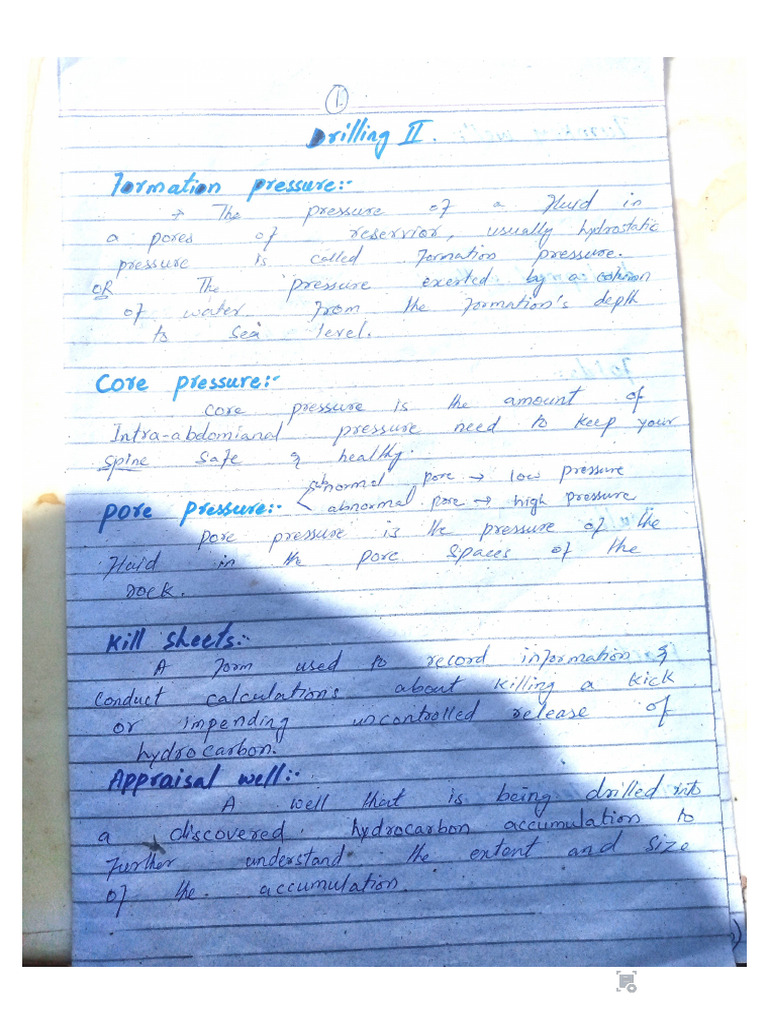 1.
Drilling II.
Formation pressure:-
→ The pressure of a fluid in
a pores of reservior, usually hydrostatic
pressure is called formation pressure.
OR The pressure exerted by a column
of water from the formation's depth
to sea level.
Core pressure:-
Core pressure is the amount of
Intra-abdomianal pressure need to keep your
spine safe & healthy.
subnormal pore → low pressure
pore pressure:- < abnormal pore → high pressure
pore pressure is the pressure of the
fluid in the pore spaces of the
rock.
Kill sheets:-
A form used to record information &
conduct calculations about killing a kick
or impending uncontrolled release of
hydrocarbon.
Appraisal well:-
A well that is being drilled into
a discovered hydrocarbon accumulation to
further understand the extent and size
of the accumulation.